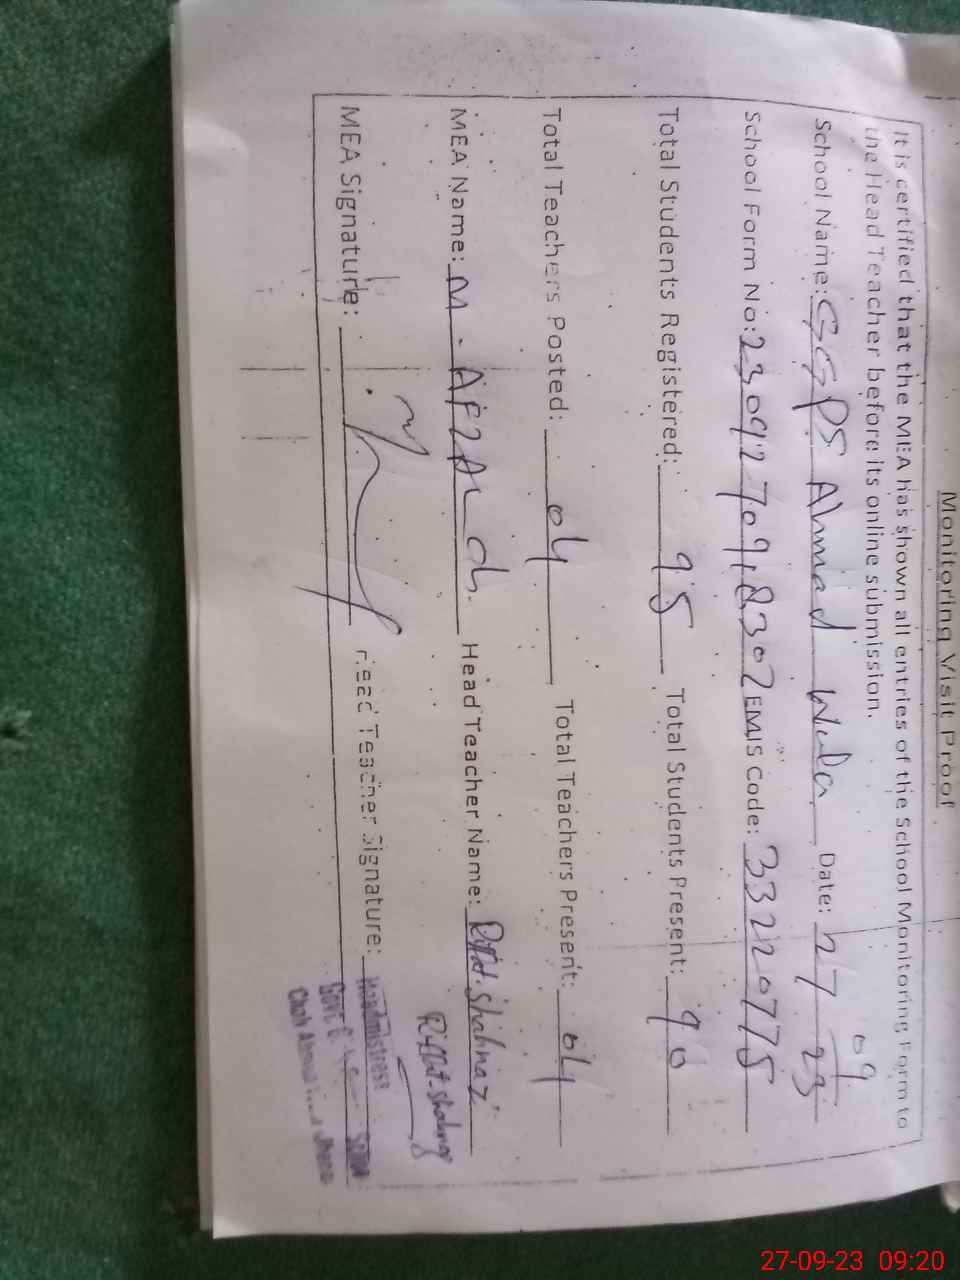 Monitoring Visit Proof
It is certified that the MEA has shown all entries of the School Monitoring Form to
the Head Teacher before its online submission.
School Name: GGPS Ahmad Wala Date: 27/09/23
School Form No: 2309270918302 EMIS Code: 33220775
Total Students Registered: 95 Total Students Present: 90
Total Teachers Posted: 04 Total Teachers Present: 04
MEA Name: M. AFZAL Head Teacher Name: Riffat Shahnaz
Riffat Shahnaz
MEA Signature: Head Teacher Signature:
Headmistress
Govt. G.
Chah Ahmad
27-09-23 09:20